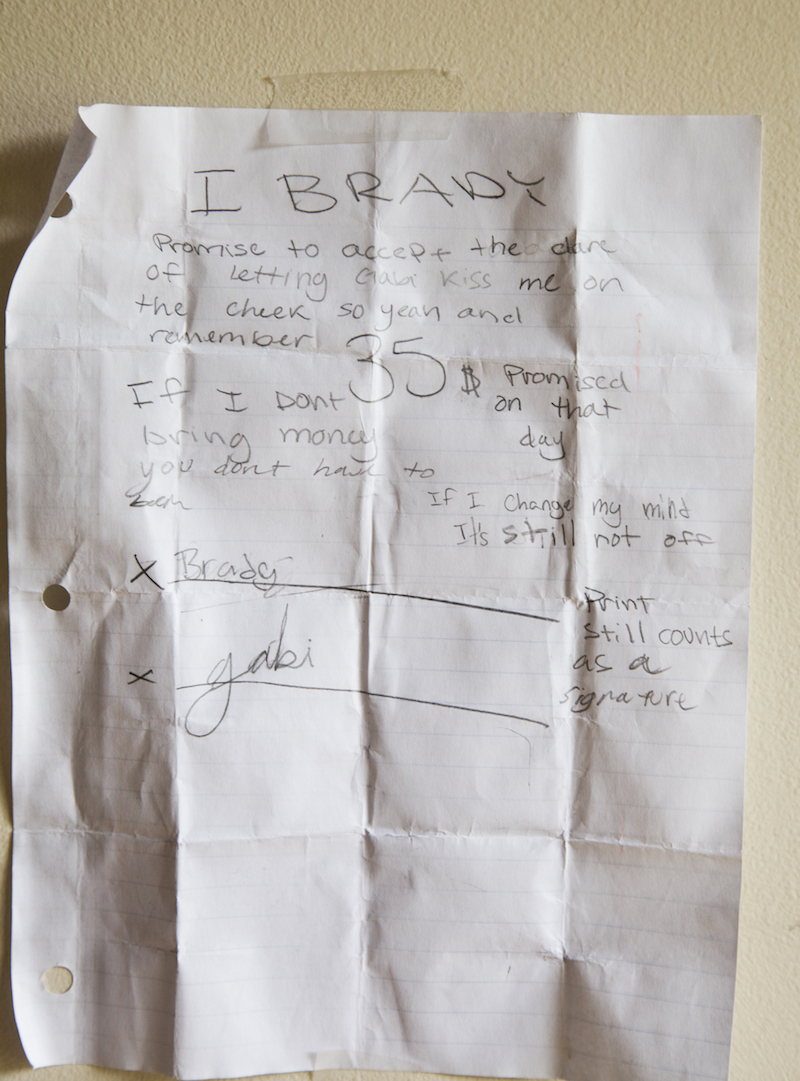 I BRADY
Promise to accept the dare
of letting Gabi kiss me on
the cheek so yeah and
remember 35 $ Promised
on that
day
If I Dont
bring money
you dont have to
If I change my mind
It's still not off
X Brady
Print
still counts
as a
signature
x gabi